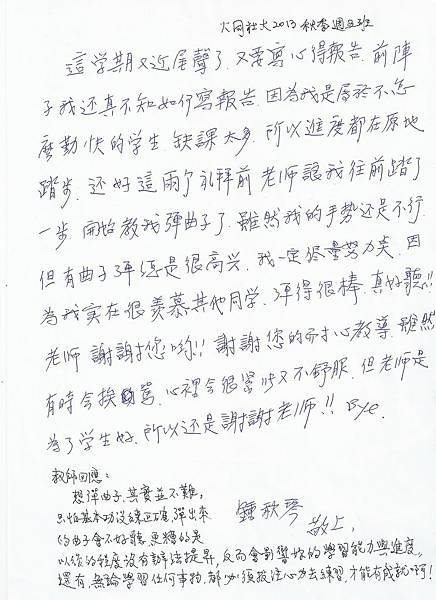 大同社大2013秋季週五班
這学期又近尾聲了.又要寫心得報告.前陣
子我还真不知如何寫報告.因為我是屬於不怎
麼勤快的学生 缺課太多.所以進度都在原地
踏步.还好這兩个礼拜前老师認我往前踏了
一步.開始教我彈曲子了.雖然我的手势还是不行.
但有曲子彈还是很高兴.我一定尽量努力矣.因
為我实在很羨慕其他同学.彈得很棒.真好聽!!
老师 謝謝您喲!! 謝謝您的耐心教導.雖然
有時会挨罵.心裡会很緊張又不舒服.但老师是
為了学生好.所以还是謝謝老师!! Bye.
鍾秋琴
敬上.
教師回應:
想彈曲子.其實並不難,
只怕基本功没練正確,彈出來
的曲子會不好聽.更糟的是
以後的程度没有辦法提昇,反而會影響妳的學習能力與進度,
還有,無論學習任何事物.都必須投注心力去練習,才能有成就啊!